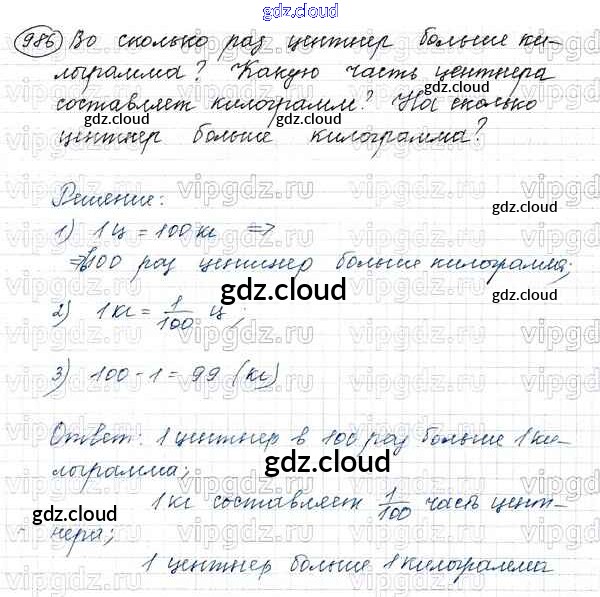 gdz.cloud
986 Во сколько раз центнер больше ки-
лограмма? Какую часть центнера
составляет килограмм? На сколько
центнер больше килограмма?
Решение:
1) 1 ц = 100 кг ⇒
⇒ в 100 раз центнер больше килограмма;
2) 1 кг = 1/100 ц;
3) 100 - 1 = 99 (кг)
Ответ: 1 центнер в 100 раз больше 1 ки-
лограмма;
1 кг составляет 1/100 часть цент-
нера;
1 центнер больше 1 килограмма
gdz.cloud
vipgdz.ru